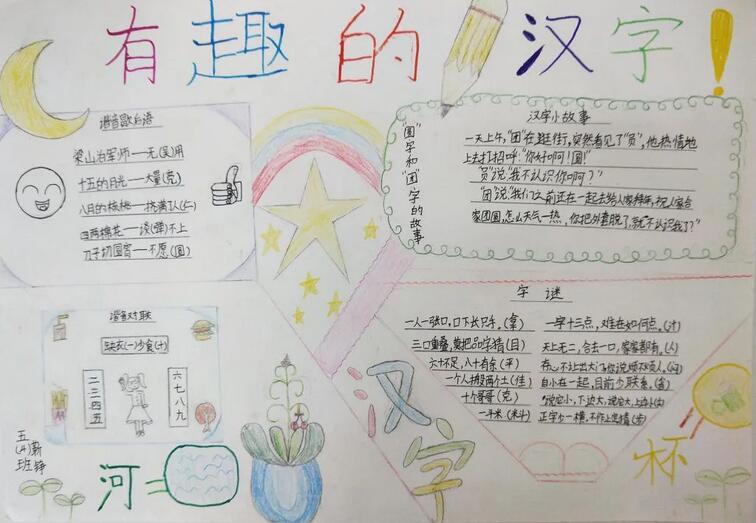 有趣的汉字！
谐音歇后语
梁山泊军师一无(吴)用
十五的月光一大量(亮)
八月的核桃一挤满了人(仁)
四两棉花一谈(弹)不上
刀子切圆宵一不愿(圆)
"圆"字和"团"字的故事
汉字小故事
一天上午,"团"在逛街,突然看见了"员",他热情地
上去打招呼:"你好啊!圆"
"员"说"我不认识你啊?"
"团"说"我们之前还在一起去给人家拜年,祝人家合
家团圆,怎么天气一热,你把外套脱了,就不认识我了?"
谐音对联
缺衣(一)少食(十)
二三四五
六七八九
五(4)班
字谜
一人一张口,口下长只手。(拿)
三口重叠,莫把品字猜(目)
六十不足,八十有余(平)
一个人搬两个土(佳)
十个哥哥(克)
一斗米(料)
一字十三点,难在如何点。(汁)
天上无二,合去一口,家家都有。(人)
自小在一起,目前少联系。(省)
正字少一横,不作上
汉字
河=
杯